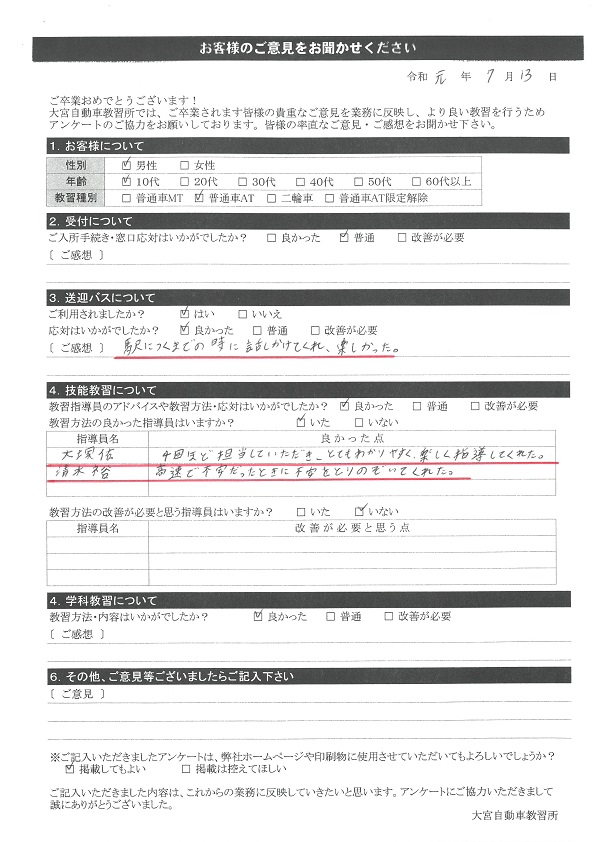 お客様のご意見をお聞かせください
令和 元 年 7 月 13 日
ご卒業おめでとうございます！
大宮自動車教習所では、ご卒業されます皆様の貴重なご意見を業務に反映し、より良い教習を行うため
アンケートのご協力をお願いしております。皆様の率直なご意見・ご感想をお聞かせ下さい。
1. お客様について
性別 ☑ 男性 □ 女性
年齢 ☑ 10代 □ 20代 □ 30代 □ 40代 □ 50代 □ 60代以上
教習種別 □ 普通車MT ☑ 普通車AT □ 二輪車 □ 普通車AT限定解除
2. 受付について
ご入所手続き・窓口応対はいかがでしたか？ □ 良かった ☑ 普通 □ 改善が必要
〔 ご感想 〕
3. 送迎バスについて
ご利用されましたか？ ☑ はい □ いいえ
応対はいかがでしたか？ ☑ 良かった □ 普通 □ 改善が必要
〔 ご感想 〕 駅につくまでの時に話しかけてくれ、楽しかった。
4. 技能教習について
教習指導員のアドバイスや教習方法・応対はいかがでしたか？ ☑ 良かった □ 普通 □ 改善が必要
教習方法の良かった指導員はいますか？ ☑ いた □ いない
指導員名 良かった点
大塚佐 4回ほど担当していただき、とてもわかりやすく、楽しく指導してくれた。
清水裕 高速で不安だったときに不安をとりのぞいてくれた。
教習方法の改善が必要と思う指導員はいますか？ □ いた ☑ いない
指導員名 改善が必要と思う点
4. 学科教習について
教習方法・内容はいかがでしたか？ ☑ 良かった □ 普通 □ 改善が必要
〔 ご感想 〕
6. その他、ご意見等ございましたらご記入下さい
〔 ご意見 〕
※ご記入いただきましたアンケートは、弊社ホームページや印刷物に使用させていただいてもよろしいでしょうか？
☑ 掲載してもよい □ 掲載は控えてほしい
ご記入いただきました内容は、これからの業務に反映していきたいと思います。アンケートにご協力いただきまして
誠にありがとうございました。
大宮自動車教習所